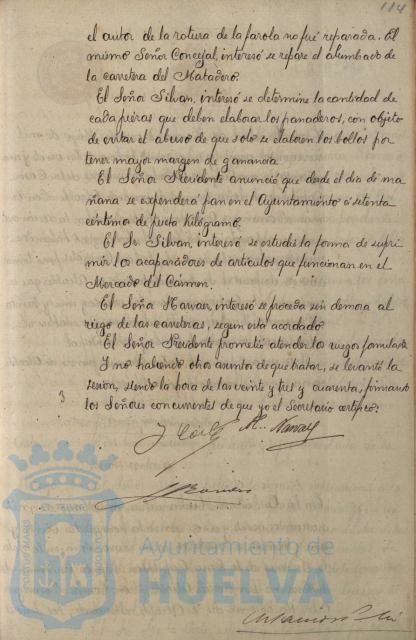 114
el autor de la rotura de la farola no fué reparada. El
mismo Señor Concejal, interesó se repare el alumbrado de
la carretera del Matadero.
El Señor Silvan, interesó se determine la cantidad de
cada piezas que deben elaborar los panaderos, con objeto
de evitar el abuso de que solo se elaboren los bollos por
tener mayor margen de ganancia.
El Señor Presidente anunció que desde el dia de ma
ñana se expenderá pan en el Ayuntamiento á setenta
céntimo de peseta Kilógramo.
El Sr. Silvan, interesó se estudie la forma de supri
mir los acaparadores de articulos que funcionan en el
Mercado del Carmen.
El Señor Narvaez, interesó se proceda sin demora al
riego de las carreteras, segun está acordado.
El Señor Presidente prometió atender los ruegos formulados
Y no habiendo otros asuntos de que tratar, se levantó la
sesion, siendo la hora de las veinte y tres y cuarenta, firmando
los Señores concurrentes de que yo el Secretario certifico.
Ayuntamiento de
HUELVA